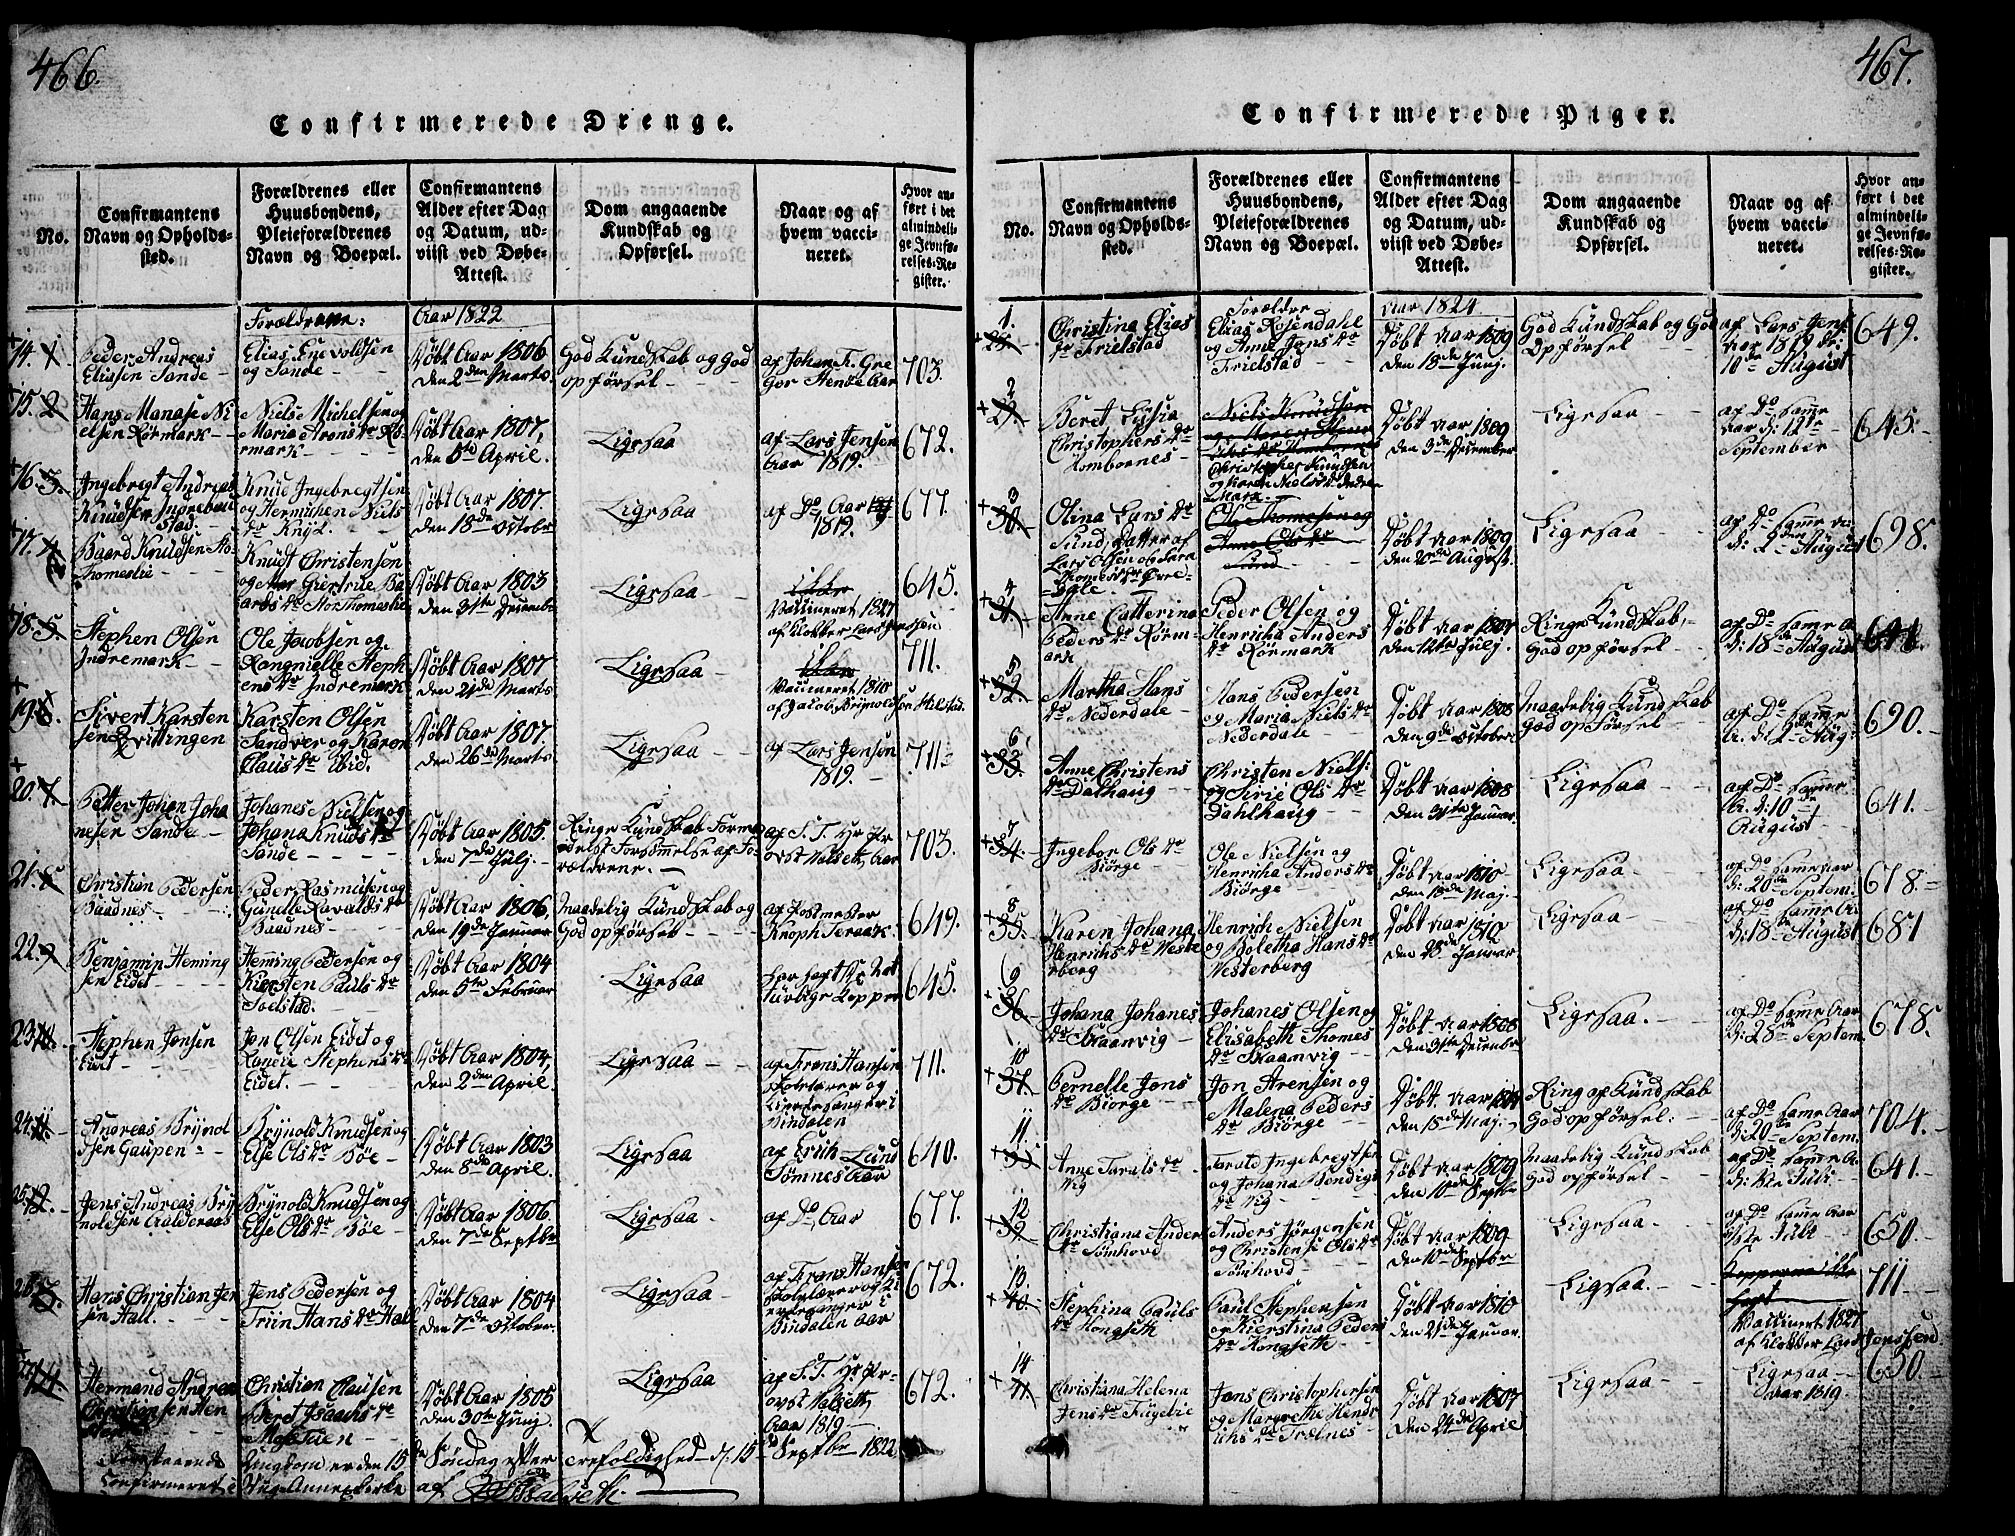 466.
Confirmerede Drenge.
No.
Confirmantens
Navn og Opholds-
sted.
Forældrenes eller
Huusbondens,
Pleieforældrenes
Navn og Boepæl.
Confirmantens
Alder efter Dag
og Datum, ud-
viist ved Døbe-
Attest.
Dom angaaende
Kundskab og
Opførsel.
Naar og af
hvem vacci-
neret.
Hvor an-
ført i det
almindeli-
ge Jevnfø-
relses-Re-
gister.
Forældrene:
Aar 1822
14. 1
Peder Andreas
Eliasen Sande
Elias Enevoldsen
og Sande
Døbt Aar 1806
den 2den Marts.
God Kundskab og God
opførsel
af Johan F. Gre
Gor Stenze Aar
703.
15. 2
Hans Manase Ni
elsen Rörmark
Niels Michelsen og
Maria Arons dr Rö-
rmark
Døbt Aar 1807,
den 5te April.
Ligesaa
af Lars Jensen
Aar 1819.
672.
16. 3.
Ingebregt Andreas
Knudsen Indrebui
stad.
Knud Ingebregtsen
og Hermichen Niels
dr Knyl
Døbt Aar 1807.
den 18de October
Ligesaa
af Do Aar
1819.
677.
17. 4
Baard Knudsen Ho-
lhomeslie
Knudt Christensen
og Giertrue Ba
ards dr Hor Thomeslie
Døbt Aar 1803
den 31te Decembr
Ligesaa
ikke
Vaccineret 1827
af Klokker Lars Jensen
645.
18. 5.
Stephen Olsen
Indremark
Ole Jacobsen og
Rangnielle Steph
ens dr Indremark
Døbt Aar 1807
den 21de Marts
Ligesaa
ikke
Vaccineret 1810
af Jacob Brynolds
711.
19. 6.
Sivert Karsten
sen Qvittingen
Karsten Olsen
Sandver og Karen
Claus dr Ibid.
Døbt Aar 1807.
den 26de Marts
Ligesaa
af Lars Jensen
1819.
711.
20. 7.
Petter Johan Joha
nesen Sande
Johanes Nielsen og
Johana Knuds dr
Sande
Døbt Aar 1805.
den 7de Julj.
Ringe Kundskab Forme
delst Forsømmelse af Fo-
rældrene.
af S. T. Hr Pr
ovst Walseth, Aar
703.
21. 8
Christian Pedersen
Baadnes
Peder Rasmusen og
Gunelle Ravalds dr
Baadnes
Døbt Aar 1806.
den 19de Januar
Maadelig Kundskab og
God opførsel
af Postmester
Knoph Teraak
649.
22. 9
Benjamin Heming
sen Eidet
Heming Pedersen og
Kiersten Pauls dr
Soelstad.
Døbt Aar 1804
den 5te Februar
Ligesaa
har haft de Nat
turlige Kopper
645.
23. 10.
Stephen Jonsen
Eidet
Jon Olsen Eidet og
Ranei Stephens dr
Eidet.
Døbt Aar 1804,
den 2den April.
Ligesaa
af Frans Hansen
Skolelærer og
Kirkesanger i
Bindalen
711.
24. 11.
Andreas Brynol
dsen Gaupen
Brynold Knudsen og
Else Ols dr Böe
Døbt Aar 1803
den 8de April.
Ligesaa
af Erich Lund
Sømnes Aar
640.
25. 12.
Jens Andreas Bry
noldsen Kalderaas
Brynold Knudsen og
Else Ols dr Böe
Døbt Aar 1806
den 7de Septbr
Ligesaa
af Do Aar
677.
26. 13.
Hans Christian Jen
sen Hall.
Jens Pedersen og
Triin Hans dr Hall
Døbt Aar 1804
den 7de October.
Ligesaa
af Frans Hansen
Skolelærer og Ki
rkesanger i
Bindalen Aar
672.
14.
Hermand Andrea
Christiansen
Christian Clausen
Beret Isaachs dr
Døbt Aar 1805
den 30te Junj.
Ligesaa
af S. T. Hr Pr-
ovst Walseth,
Aar 1819
672.
Foranstaaende Ungdom er den 15de Søndag efter Trefoldighed d: 15 Septbr 1822
Confirmeret i Vig Annexkirke af Walseth
467.
Confirmerede Piger.
No.
Confirmantens
Navn og Opholds-
sted.
Forældrenes eller
Huusbondens,
Pleieforældrenes
Navn og Boepæl.
Confirmantens
Alder efter Dag
og Datum, ud-
viist ved Døbe-
Attest.
Dom angaaende
Kundskab og
Opførsel.
Naar og af
hvem vacci-
neret.
Hvor an-
ført i det
almindeli-
ge Jevnfø-
relses-Re-
gister.
Forældre
Aar 1824
1.
Christina Elias
dr Frielstad
Elias Rosendahl
og Anne Jens dr
Frielstad
Døbt Aar 1809
den 18de Junj.
God Kundskab og God
Opførsel
af Lars Jens.
Aar 1819 d:
10de August
649.
2
29.
Beret Lusia
Christophers dr
Hombornes
Niels Knudsen
Christopher Knudsen
og Karen Niels dr Indre
Mark.
Døbt Aar 1809
den 3de December
Ligesaa
af Do samme
Aar d: 12te
September
645.
3
30.
Olina Lars dr
Sund, Datter af
Lars Olsen og Sara
Thomes dr Øvre-
dale.
Ole Thomesen og
Anne Ols dr
Sund
Døbt Aar 1809
den 20de August.
Ligesaa
af Do samme Aa
d: 2den August
698.
4
31.
Anne Catterina
Peders dr Rörm-
ark
Peder Olsen og
Henricha Anders
dr Rörmark
Døbt Aar 1807
den 12te Julj.
Ringe Kundskab,
God opførsel
af Do samme A
d: 18de August
5
32.
Martha Hans
dr Nederdale
Hans Pedersen
og Maria Niels dr
Nederdale
Døbt Aar 1808
den 9de October
Maadelig Kundskab
God opførsel
af Do samme
A. d: 2den Aug:
690.
6
33.
Anne Christens
dr Dalhaug
Christen Niels:
og Sirie Ols dr
Dahlhaug
Døbt Aar 1808
den 31te Januar.
Ligesaa
af Do samme
A. d: 10de
August
641.
7
34.
Ingebor Ols dr
Biørge
Ole Nielsen og
Henricha Anders dr
Biørge
Døbt Aar 1810
den 13de Maj.
Ligesaa
af Do samme Aar
d: 28de Septem.
678.
8
35.
Karen Johana
Henrichs dr Weste
rberg
Henrich Nielsen
og Boletha Hans dr
Westerberg
Døbt Aar 1810
den 28de Januar
Ligesaa
af Do samme A.
d: 18de August
681
9
36.
Johana Johanes
dr Skaanvig
Johanes Olsen og
Elisabeth Thomes
dr Skaanvig
Døbt Aar 1808
den 31te December
Ligesaa.
af Do samme Aar
d: 28de Septem.
678.
10
37.
Pernelle Jons
dr Biørge
Jon Arensen og
Malena Peders
dr Biørge
Døbt Aar
den 15de Maj.
Ring af Kundskab
God opførsel:
af Do samme Aar
d: 20de Septem.
704.
11.
Anne Taralds dr
Vig
Tarald Ingebregtsen
og Johana Bendigs
dr Vig
Døbt Aar 1809
den 10de Septbr
Maadelig Kundskab
God opførsel
af Do samme A.
d: 1ste Juli
641.
12
39.
Christiana Anders
dr Sømhovd
Anders Jørgensen
og Christense Ols dr
Sømhovd
Døbt Aar 1809
den 10de Septbr
Ligesaa
af Do samme Aar
1ste Juli
650.
13.
40.
Stephina Pauls
dr Hongseth
Paul Stephensen
og Kierstina Peders
dr Hongseth
Døbt Aar 1810
den 21de Januar.
Ligesaa.
Kopperne ikke
haft
Vaccinert 1827
af Klokker Lars Jenssen
711.
14
41.
Christiana Helena
Jens dr Fuglvie
Jens Christophersen
og Margrethe Hendr
ichs dr Trælnes
Døbt Aar 1807
den 24de April
Ligesaa
Ligesaa
Aar 1819.
650.